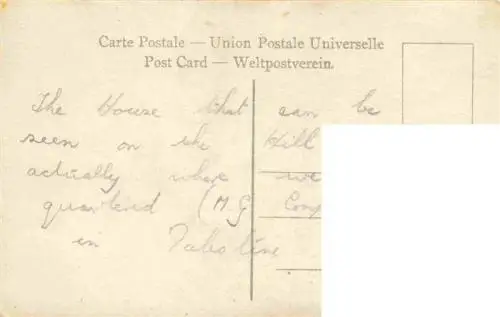 Carte Postale — Union Postale Universelle
Post Card — Weltpostverein.
The House that can be
seen on the Hill
actually where we
quartered (M G Comp
in Palestine